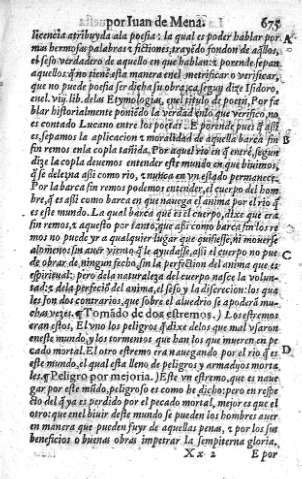 por Iuan de Mena. 675
licencia atribuyda ala poesia: la qual es poder hablar por A
mas hermosas palabras ⁊ fictiones, trayẽdo fondon de aq̃llos,
el seso verdadero de aquello en que hablan: ⁊ porende sepan
aquellos q̃ no tienẽ esta manera enel metrificar o verificar,
que no puede poesia ser dicha su obra: ca segun dize Isidoro,
enel. viij. lib. delas Etymologias, enel titulo de poesis, Por fa
blar historialmente poniẽdo la verdad enlo que verifico, no
es contado Lucano entre los poetas. E porende pues q̃ assi
es, sepamos la aplicacion ⁊ moralidad de aquesta barca sin B
sin remos enla copla tañida. Por aquel rio en q̃ entrè, segun
dize la copla deuemos entender este mundo en que biuimos,
q̃ se delezna assi como rio, ⁊ nunca en vn estado permanece.
Por la barca sin remos podemos entender, el cuerpo del hom
bre, q̃ es assi como barca en que nauega el anima por el rio q̃
es este mundo. La qual barca que es el cuerpo, dize que era
sin remos, ⁊ aquesto por tanto, que assi como barca sin los re
mos no puede yr a qualquier lugar que quisiesse, ni mouerse
alomenos sin auer viento q̃ le ayudasse, assi el cuerpo no pue C
de obrar, de ningun fecho, sin la perfiction del anima que es
espiritual: pero dela naturaleza del cuerpo nasce la volun-
tad: ⁊ dela perfeciõ del anima, el seso y la discrecion: los que
les son dos contrarios, que sobre el aluedrio se apoderã mu-
chas vezes. ¶ Tomãdo de dos estremos.) Los estremos
eran estos, El vno los peligros q̃ dixe delos que mal vsaron
eneste mundo, y los tormentos que han los que mueren en pe
cado mortal. El otro estremo era nauegando por el rio q̃ es D
este mundo, el qual esta lleno de peligros y armadijos morta
les. ¶ Peligro por mejoria.) Este vn estremo, que es naue
gar por este mũdo, peligroso es como he dicho: pero en respe
cto del q̃ ya es perdido por el pecado mortal, mejor es que el
otro: que enel biuir deste mundo se pueden los hombres auer
en manera que pueden fuyr de aquellas penas, ⁊ por sus
beneficios o buenas obras impetrar la sempiterna gloria,
Xx 2 E por